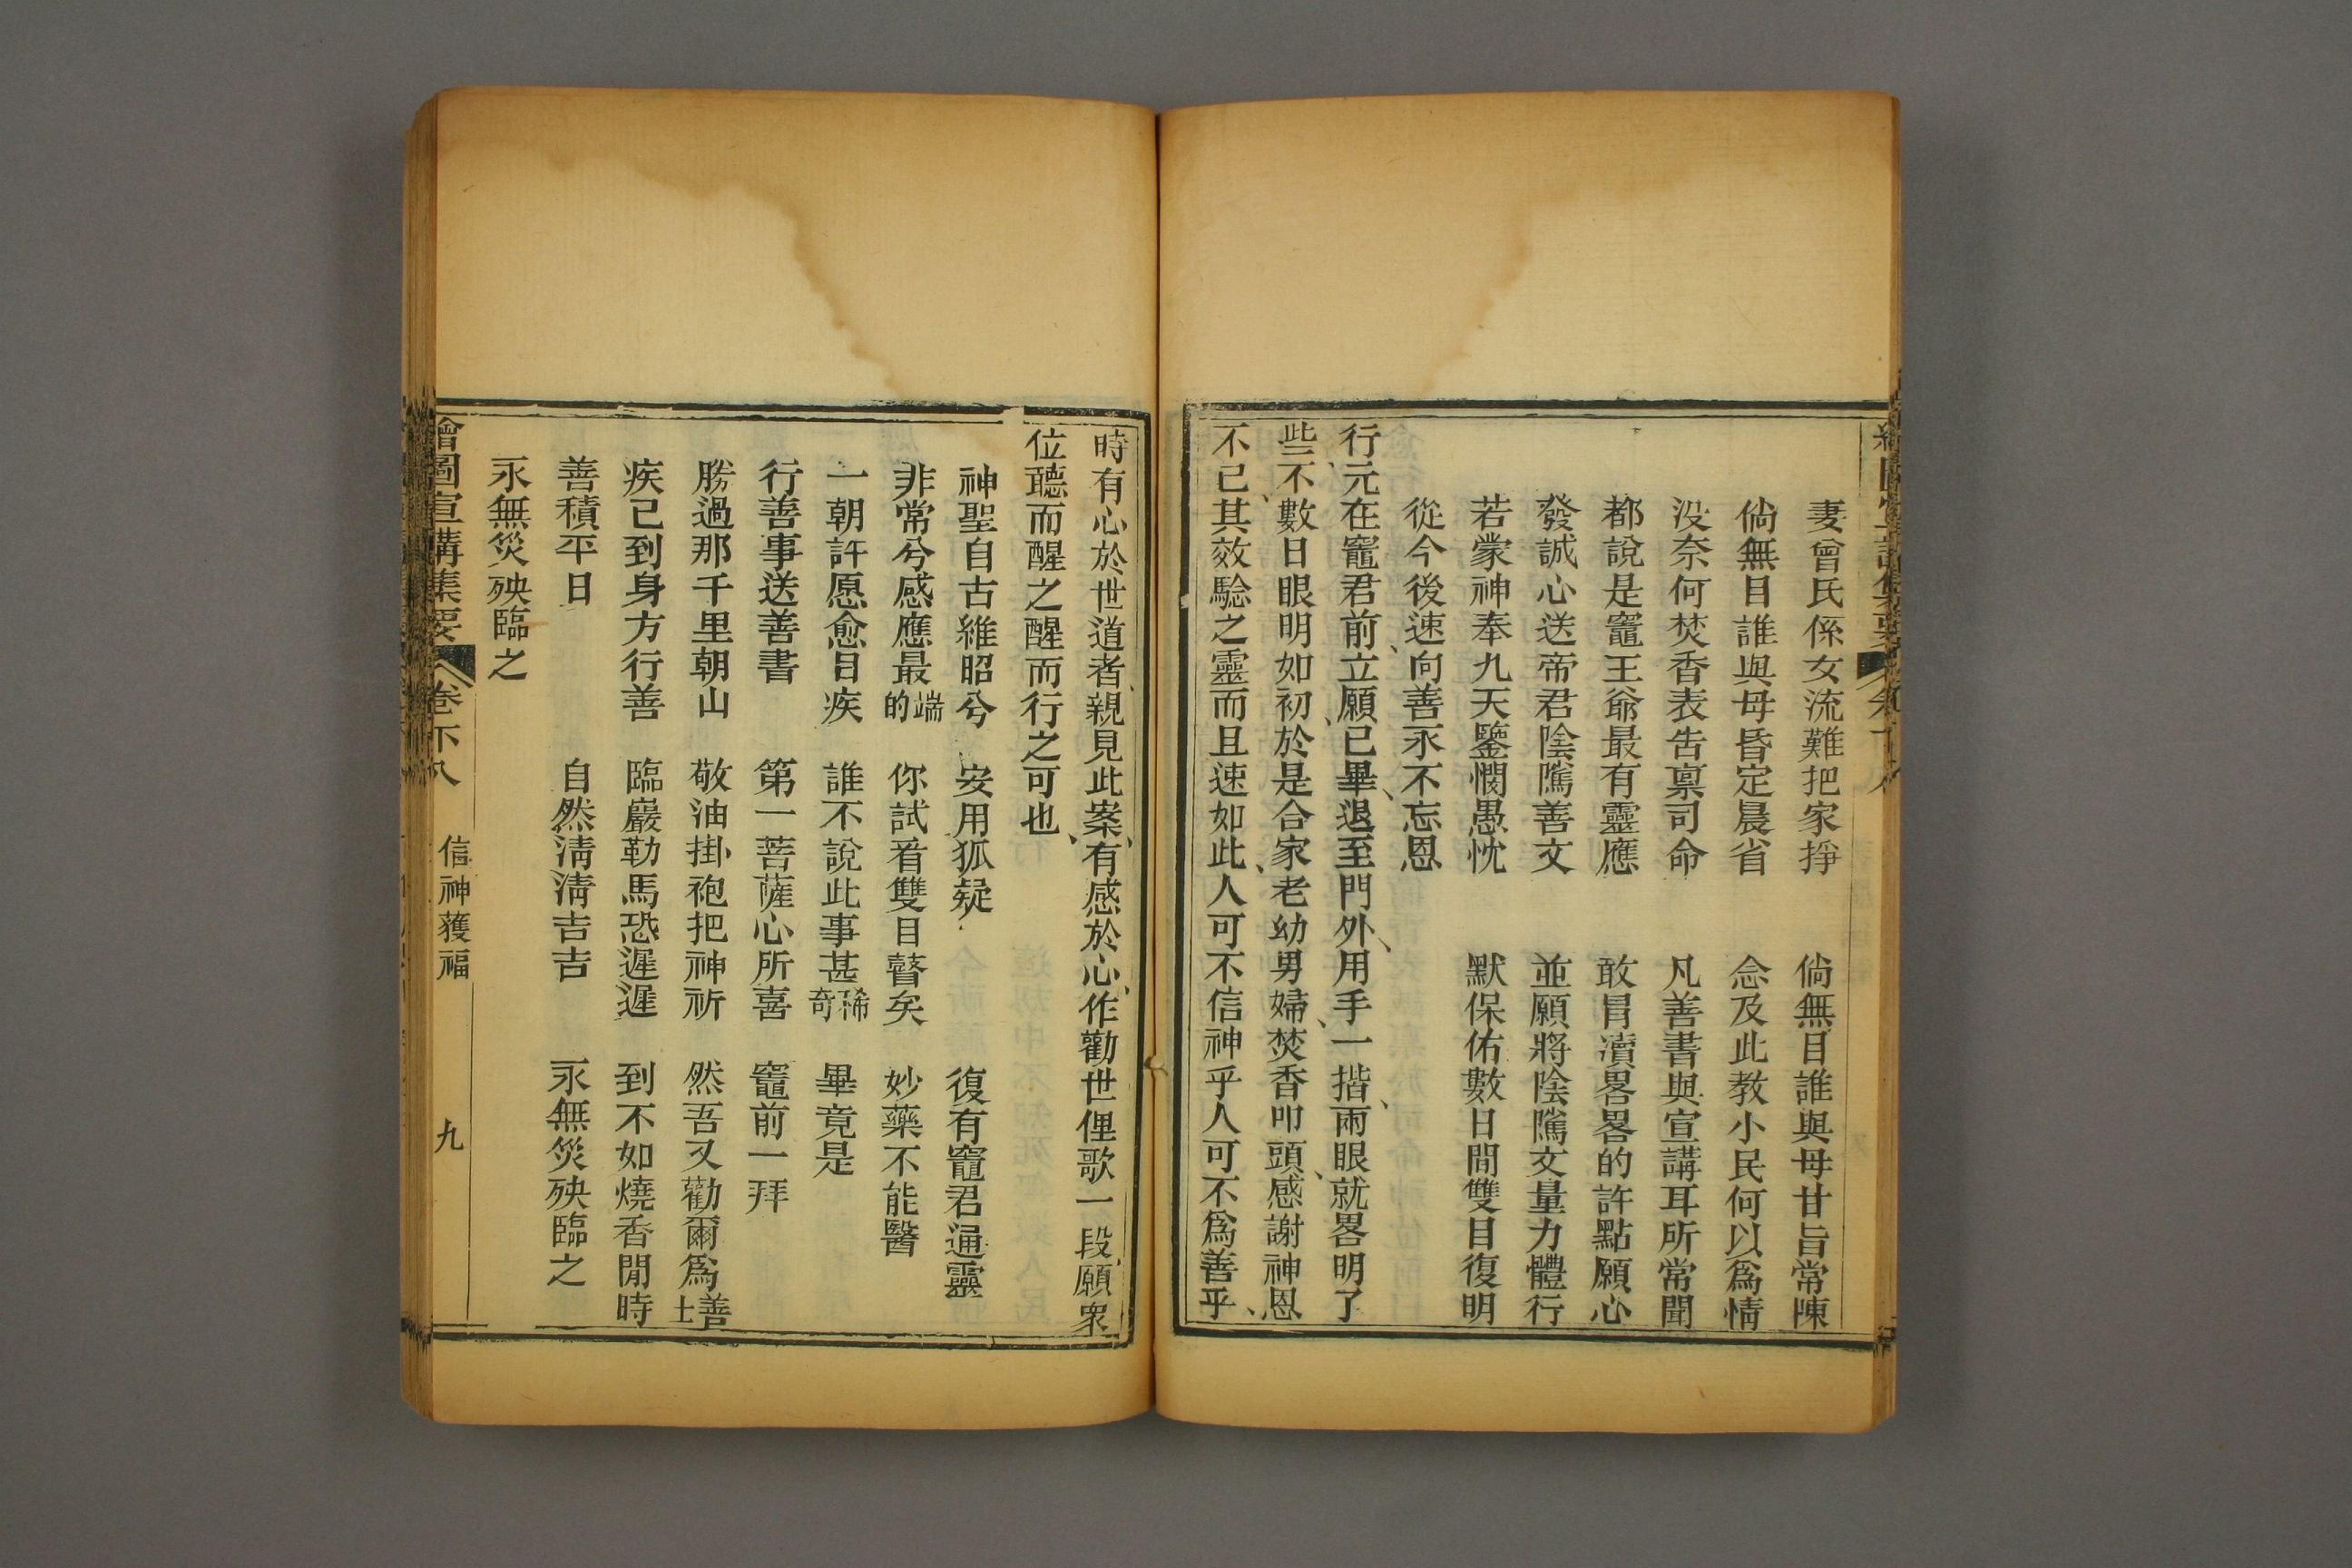 妻曾氏係女流難把家掙　倘無目誰與母甘旨常陳
倘無目誰與母昏定晨省　念及此教小民何以爲情
没奈何焚香表告禀司命　凡善書與宣講耳所常聞
都說是竈王爺最有靈應　敢冒瀆畧畧的許點願心
發誠心送帝君陰隲善文　並願將陰隲文量力體行
若蒙神奉九天鑒憫愚忱　默保佑數日間雙目復明
從今後速向善永不忘恩
行元在竈君前、立願、已畢、退至門外、用手一揩、兩眼就畧明了
些、不數日眼明如初、於是合家老幼男婦、焚香叩頭、感謝神恩
不已、其效驗之靈而且速如此、人可不信神乎人可不爲善乎、
時有心於世道者、親見此案、有感於心、作勸世俚歌一段、願衆
位聽而醒之醒而行之可也、
神聖自古維昭兮　安用狐疑　復有竈君通靈
非常兮感應最端的　你試看雙目瞽矣　妙藥不能醫
一朝許愿愈目疾　誰不說此事甚稀奇　畢竟是
行善事送善書　第一菩薩心所喜　竈前一拜
勝過那千里朝山　敬油掛袍把神祈　然吾又勸爾爲善士
疾已到身方行善　臨巖勒馬恐遲遲　到不如燒香閒時
善積平日　自然清清吉吉　永無災殃臨之
永無災殃臨之
繪圖宣講集要　卷下八　信神獲福　九